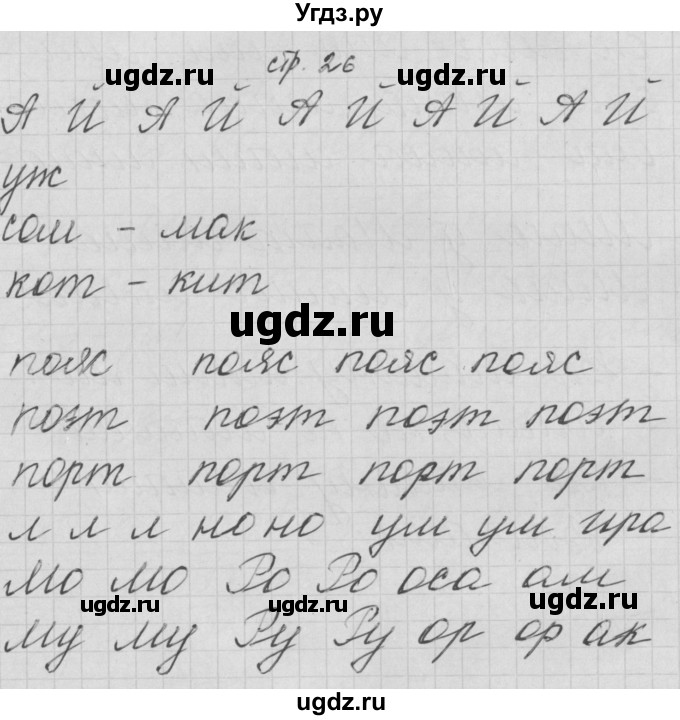 Угдз.ру
стр. 26
ugdz.ru ugdz.ru
А Й А Й А Й А Й А Й
уж
сом - мак
кот - кит
ugdz.ru
пояс пояс пояс пояс
поэт поэт поэт поэт
порт порт порт порт
л л л но но ум ум ира
Мо мо Ро Ро оса ам
ugdz.ru ugdz.ru ugdz.ru
Му му Ру Ру ор ор ак
ugdz.ru